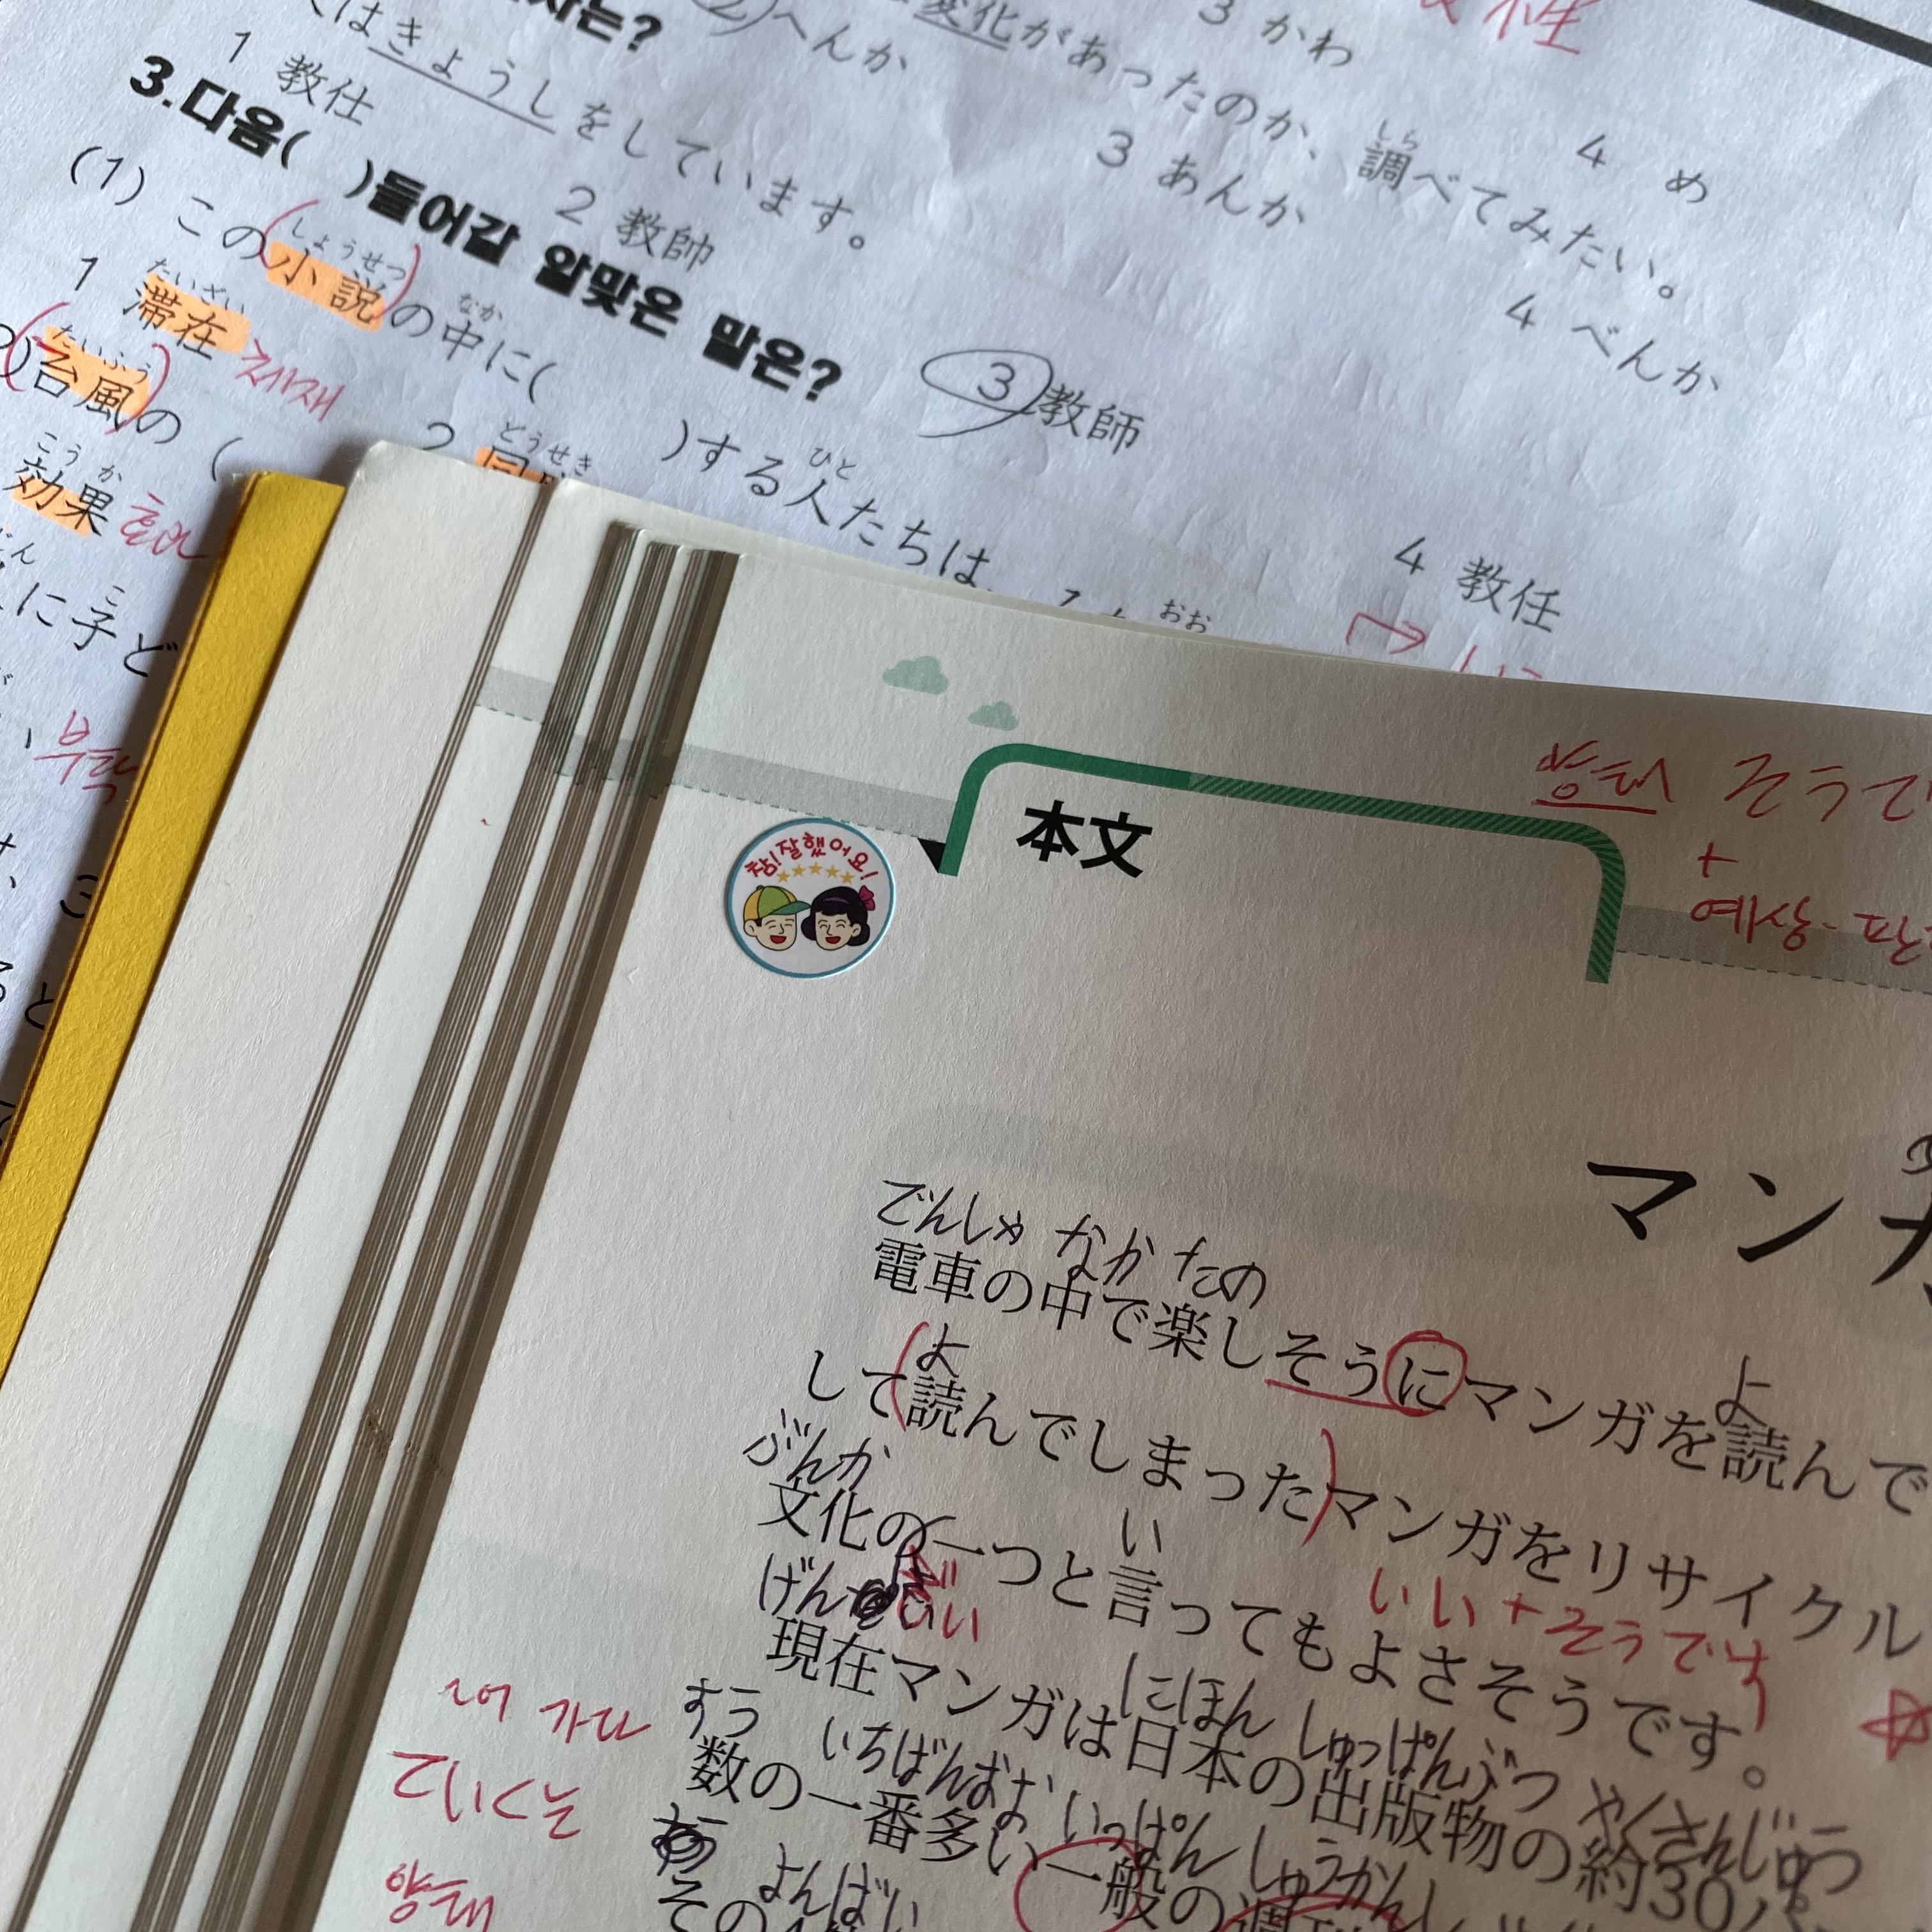 3 かわ
4 め
変化があったのか、調べてみたい。
しら
② へんか
3 あんか
4 べんか
はきょうしをしています。
1 教仕
2 教帥
③ 教師
4 教任
3.다음( )들어갈 알맞은 말은?
(1) この小説の中に( )する人たちは、
しょうせつ
なか
ひと
おお
1 滞在 체재
たいざい
2
どうせき
台風の (
たいふう
効果 효과
こうか
に子ど
こ
本文
참!잘했어요!
양태 そうで
+
예상·판
マンガ
でんしゃ なか たの
電車の中で楽しそうにマンガを読んで
よ よ
して読んでしまったマンガをリサイクル
ぶんか い
文化の一つと言ってもよさそうです。
いい+そうです
げんざい
現在マンガは日本の出版物の約30
にほん しゅっぱんぶつ やくさんじゅう
~어 가다
すう いちばんおお いっぱん しゅうかんし
数の一番多い一般の週刊
ていくる
양태
よんばい
その4